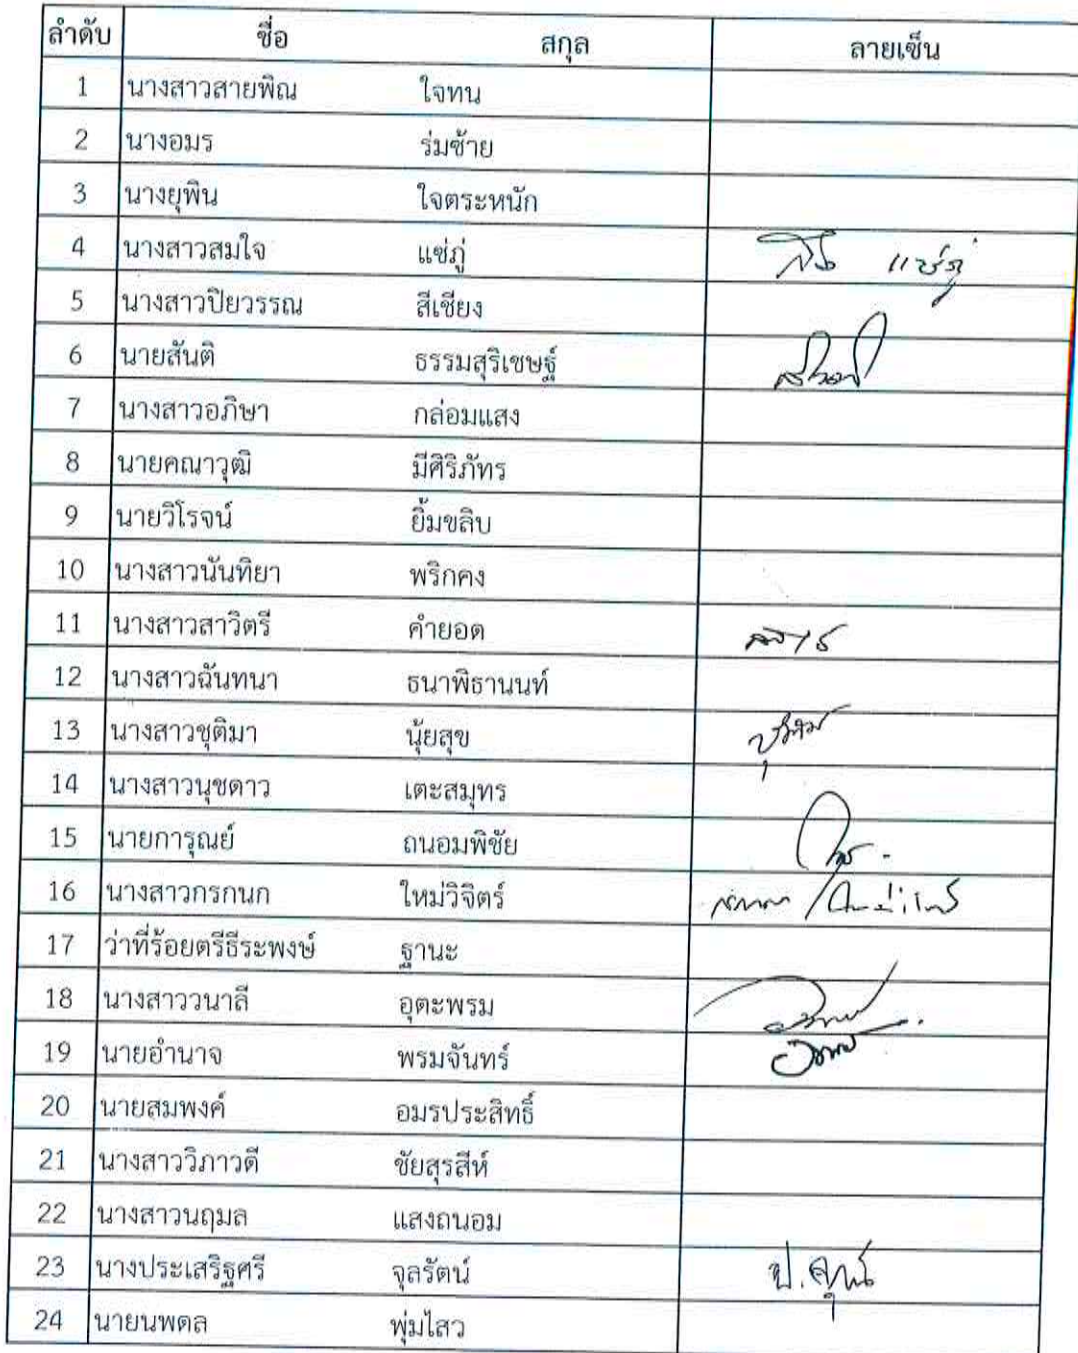 ลำดับ ชื่อ สกุล ลายเซ็น
1 นางสาวสายพิณ ใจทน
2 นางอมร ร่มซ้าย
3 นางยุพิน ใจตระหนัก
4 นางสาวสมใจ แซ่ภู่ แซ่ภู่
5 นางสาวปิยวรรณ สีเชียง
6 นายสันติ ธรรมสุริเชษฐ์
7 นางสาวอภิษา กล่อมแสง
8 นายคณาวุฒิ มีศิริภัทร
9 นายวิโรจน์ ยิ้มขลิบ
10 นางสาวนันทิยา พริกคง
11 นางสาวสาวิตรี คำยอด
12 นางสาวฉันทนา ธนาพิธานนท์
13 นางสาวชุติมา นุ้ยสุข
14 นางสาวนุชดาว เตะสมุทร
15 นายการุณย์ ถนอมพิชัย
16 นางสาวกรกนก ใหม่วิจิตร์
17 ว่าที่ร้อยตรีธีระพงษ์ ฐานะ
18 นางสาววนาลี อุตะพรม
19 นายอำนาจ พรมจันทร์
20 นายสมพงค์ อมรประสิทธิ์
21 นางสาววิภาวดี ชัยสุรสีห์
22 นางสาวนฤมล แสงถนอม
23 นางประเสริฐศรี จุลรัตน์
24 นายนพดล พุ่มไสว